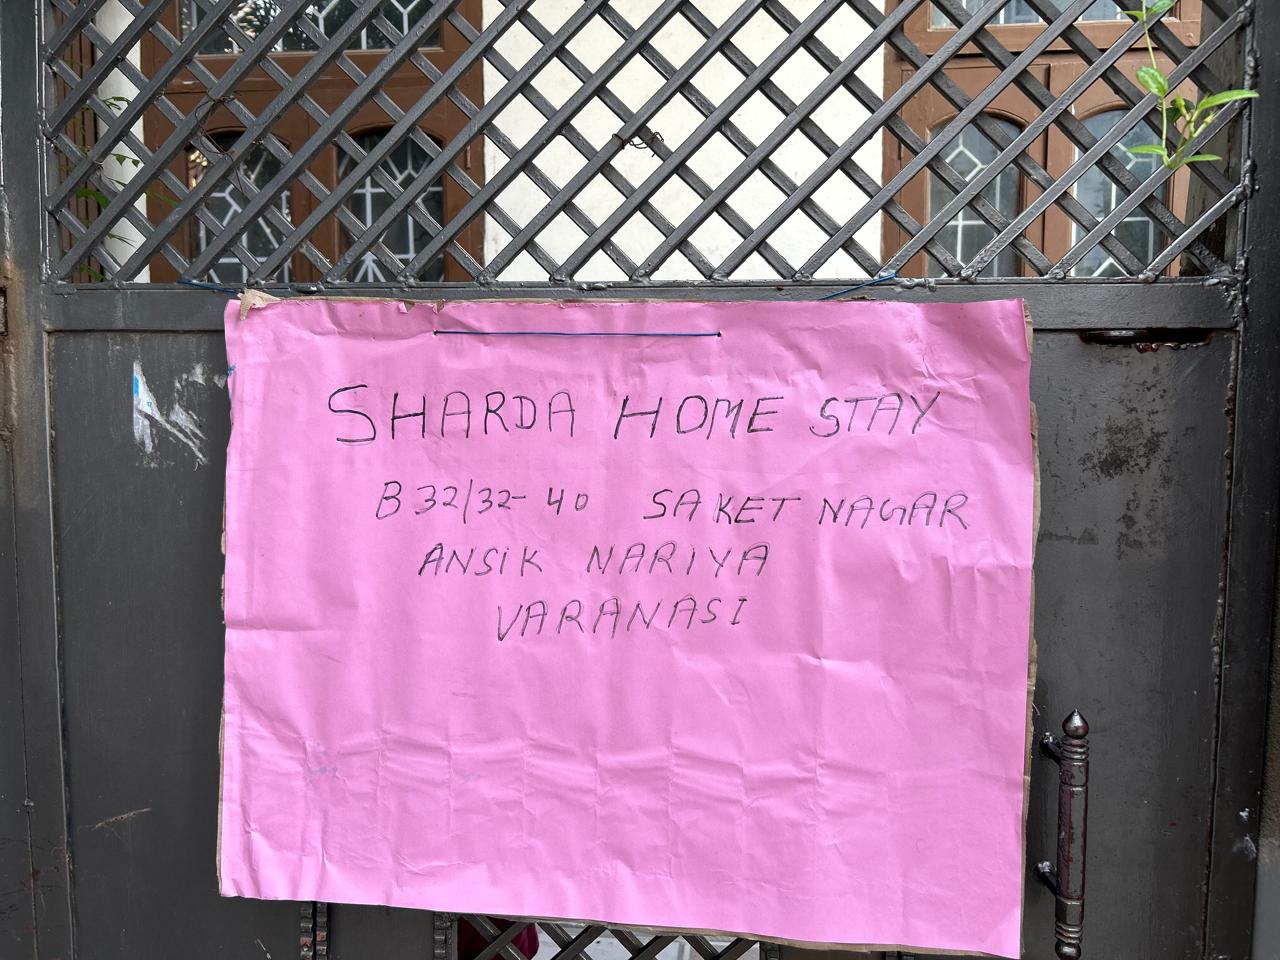 SHARDA HOME STAY
B 32/32-40 SAKET NAGAR
ANSIK NARIYA
VARANASI